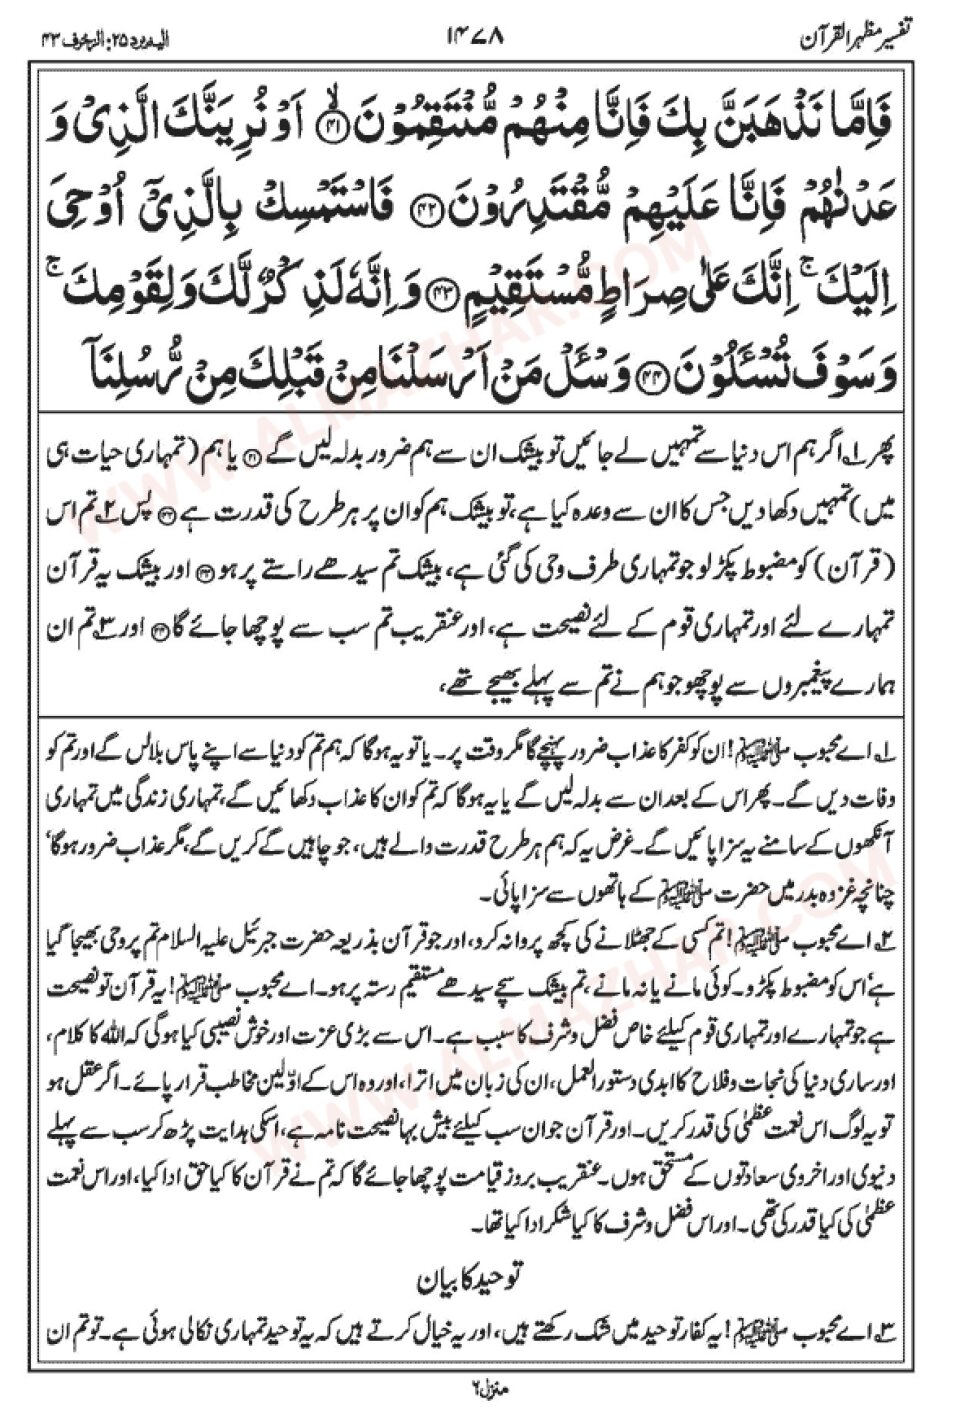 تفسیر مظہر القرآن ۱۴۷۸ الیہ یرد ۲۵: الزخرف ۴۳
فَاِمَّا نَذْهَبَنَّ بِكَ فَاِنَّا مِنْهُمْ مُّنْتَقِمُوْنَ ۙ﴿۴۱﴾ اَوْ نُرِيَنَّكَ الَّذِىْ وَ
عَدْنٰهُمْ فَاِنَّا عَلَيْهِمْ مُّقْتَدِرُوْنَ ﴿۴۲﴾ فَاسْتَمْسِكْ بِالَّذِىْۤ اُوْحِىَ
اِلَيْكَ ۚ اِنَّكَ عَلٰى صِرَاطٍ مُّسْتَقِيْمٍ ﴿۴۳﴾ وَ اِنَّهٗ لَذِكْرٌ لَّكَ وَ لِقَوْمِكَ ۚ
وَ سَوْفَ تُسْـَٔلُوْنَ ﴿۴۴﴾ وَ سْـَٔلْ مَنْ اَرْسَلْنَا مِنْ قَبْلِكَ مِنْ رُّسُلِنَاۤ
پھر ۱؎ اگر ہم اس دنیا سے تمہیں لے جائیں تو بیشک ان سے ہم ضرور بدلہ لیں گے ﴿۴۱﴾ یا ہم (تمہاری حیات ہی
میں) تمہیں دکھا دیں جس کا ان سے وعدہ کیا ہے، تو بیشک ہم کو ان پر ہر طرح کی قدرت ہے ﴿۴۲﴾ پس ۲؎ تم اس
(قرآن) کو مضبوط پکڑ لو جو تمہاری طرف وحی کی گئی ہے، بیشک تم سیدھے راستے پر ہو ﴿۴۳﴾ اور بیشک یہ قرآن
تمہارے لئے اور تمہاری قوم کے لئے نصیحت ہے، اور عنقریب تم سب سے پوچھا جائے گا ﴿۴۴﴾ اور ۳؎ تم ان
ہمارے پیغمبروں سے پوچھو جو ہم نے تم سے پہلے بھیجے تھے،
۱؎ اے محبوب ﷺ! ان کو کفر کا عذاب ضرور پہنچے گا مگر وقت پر۔ یا تو یہ ہوگا کہ ہم تم کو دنیا سے اپنے پاس بلالیں گے اور تم کو
وفات دیں گے۔ پھر اس کے بعد ان سے بدلہ لیں گے یا یہ ہوگا کہ تم کو ان کا عذاب دکھائیں گے، تمہاری زندگی میں تمہاری
آنکھوں کے سامنے یہ سزا پائیں گے۔ غرض یہ کہ ہم ہر طرح قدرت والے ہیں، جو چاہیں گے کریں گے، مگر عذاب ضرور ہوگا،
چنانچہ غزوہ بدر میں حضرت ﷺ کے ہاتھوں سے سزا پائی۔
۲؎ اے محبوب ﷺ! تم کسی کے جھٹلانے کی کچھ پروا نہ کرو، اور جو قرآن بذریعہ حضرت جبرئیل علیہ السلام تم پر وحی بھیجا گیا
ہے، اس کو مضبوط پکڑو۔ کوئی مانے یا نہ مانے، تم بیشک سچے سیدھے مستقیم رستہ پر ہو۔ اے محبوب ﷺ! یہ قرآن تو نصیحت
ہے جو تمہارے اور تمہاری قوم کیلئے خاص فضل و شرف کا سبب ہے۔ اس سے بڑی عزت اور خوش نصیبی کیا ہوگی کہ اللہ کا کلام،
اور ساری دنیا کی نجات و فلاح کا ابدی دستور العمل، ان کی زبان میں اترا، اور وہ اس کے اوّلین مخاطب قرار پائے۔ اگر عقل ہو
تو یہ لوگ اس نعمت عظمیٰ کی قدر کریں۔ اور قرآن جو ان سب کیلئے بیش بہا نصیحت نامہ ہے، اسکی ہدایت پڑھ کر سب سے پہلے
دنیوی اور اخروی سعادتوں کے مستحق ہوں۔ عنقریب بروز قیامت پوچھا جائے گا کہ تم نے قرآن کا کیا حق ادا کیا، اور اس نعمت
عظمیٰ کی کیا قدر کی تھی۔ اور اس فضل و شرف کا کیا شکر ادا کیا تھا۔
توحید کا بیان
۳؎ اے محبوب ﷺ! یہ کفار توحید میں شک رکھتے ہیں، اور یہ خیال کرتے ہیں کہ یہ توحید تمہاری نکالی ہوئی ہے۔ تو تم ان
منزل ۶
WWW.ALMAZHAR.COM
WWW.ALMAZHAR.COM